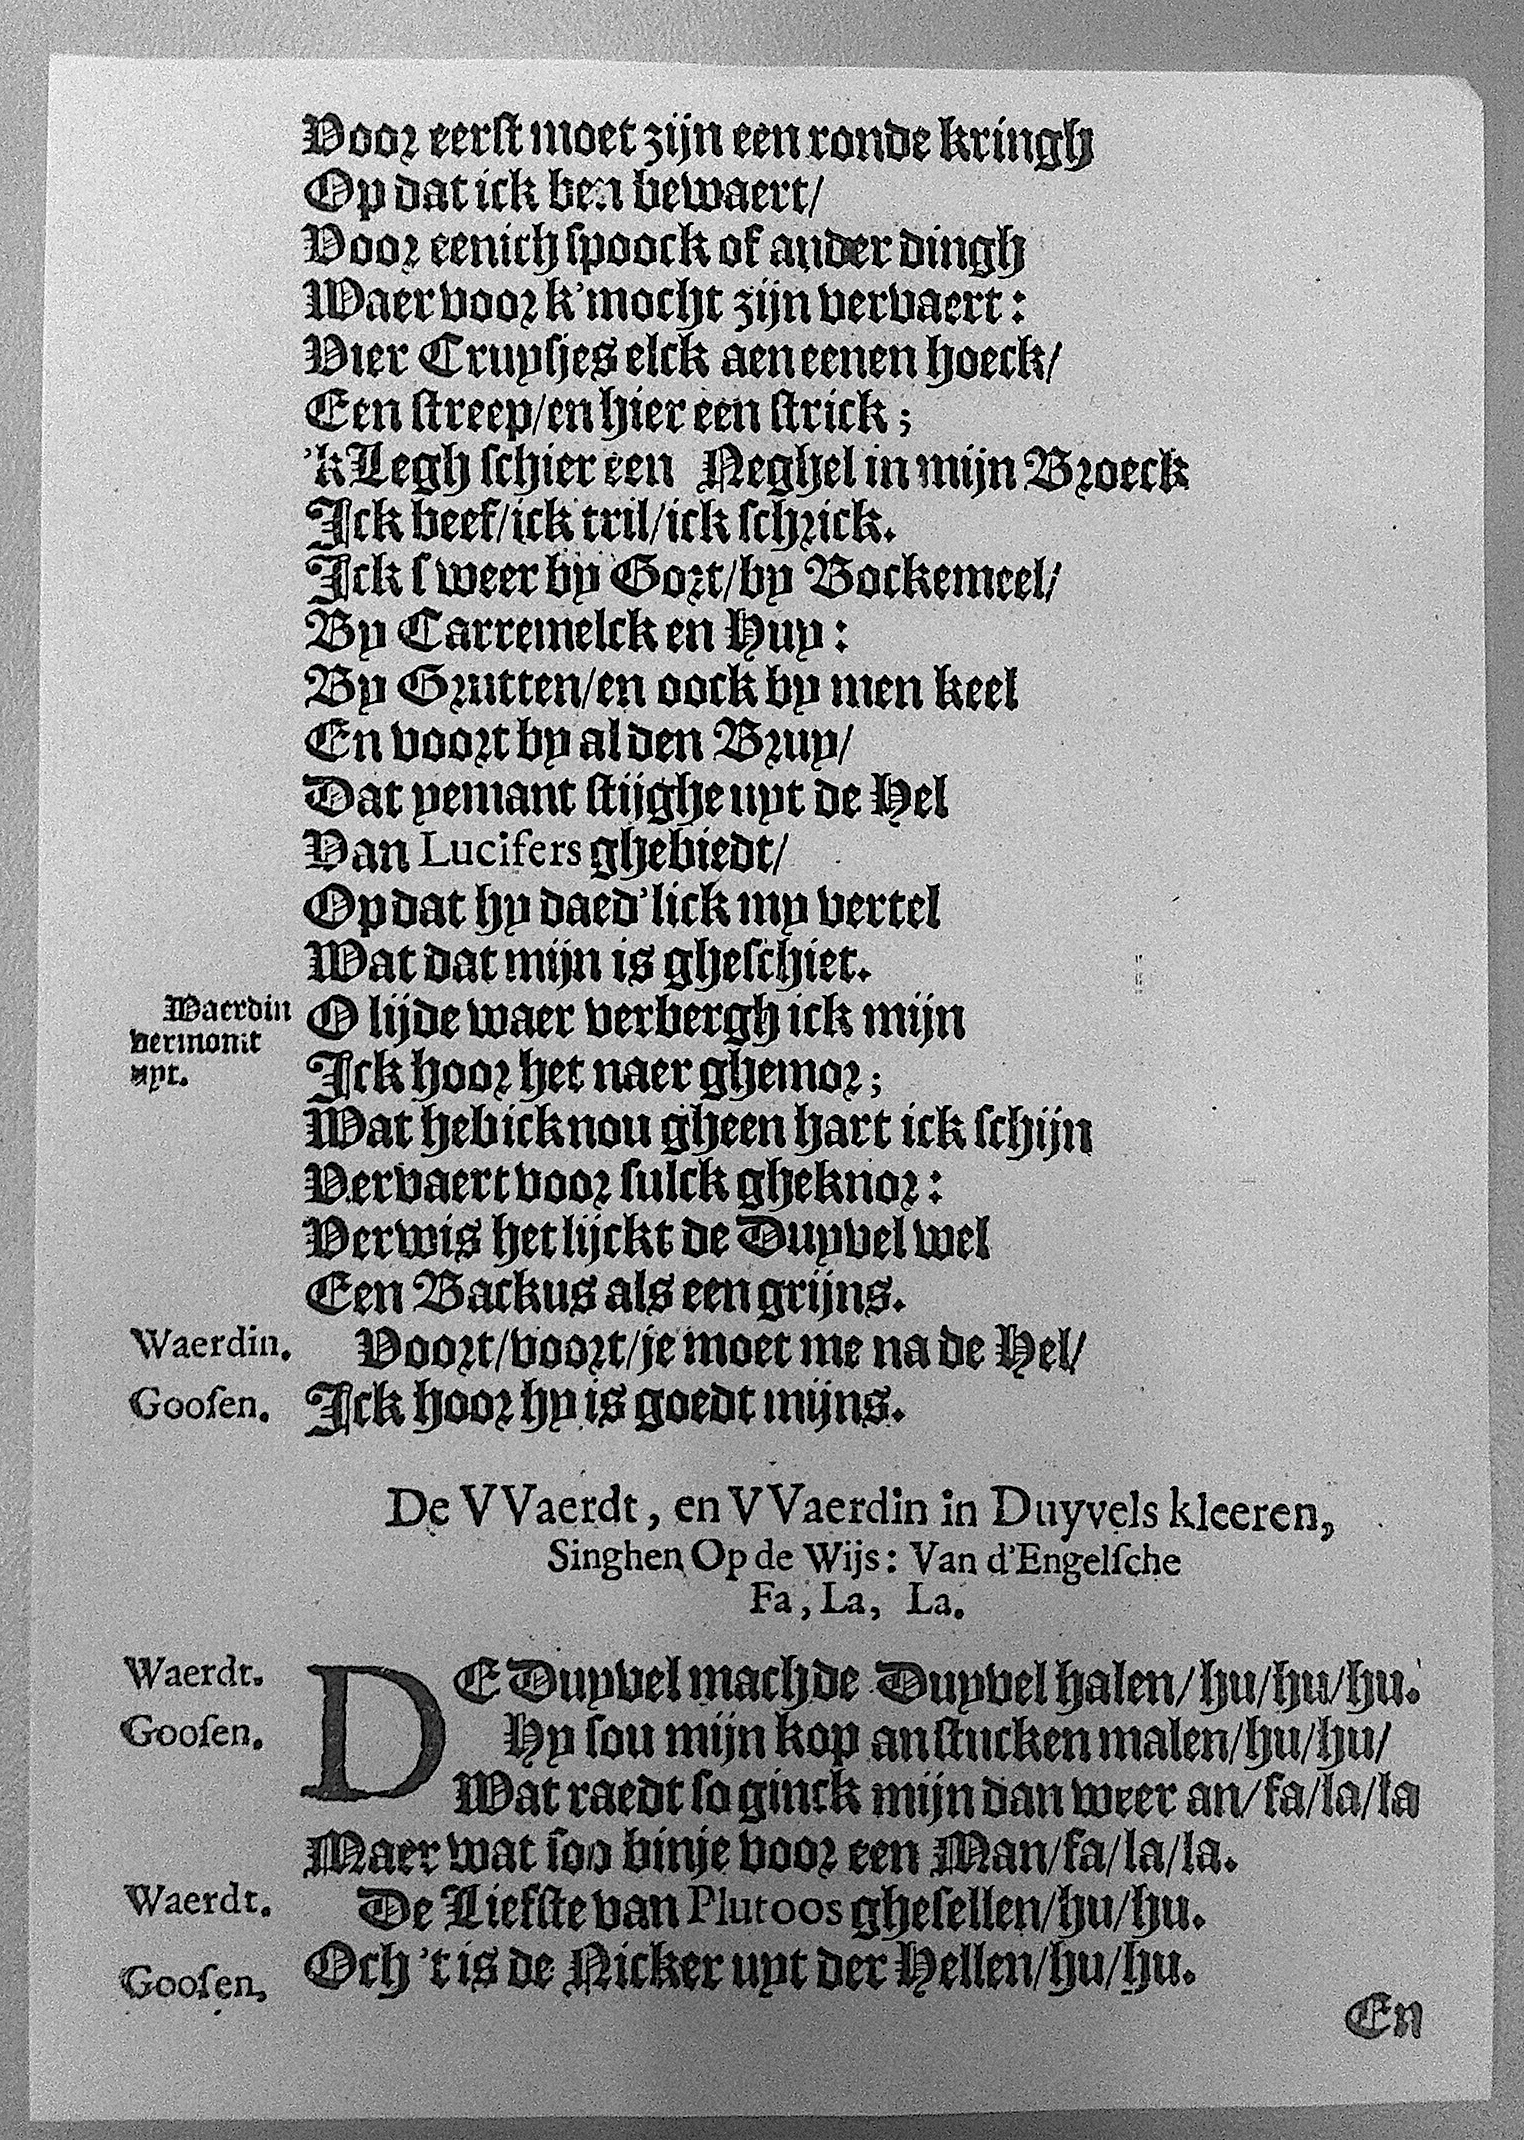 Voor eerst moet zijn een ronde kringh
Op dat ick ben bewaert/
Voor eenich spoock of ander dingh
Waer voor k'mocht zijn vervaert:
Vier Cruysjes elck aen eenen hoeck/
Een streep/en hier een strick;
'k Legh schier een Neghel in mijn Broeck
Ick beef/ick tril/ick schrick.
Ick sweer by Gort/by Bockemeel/
By Carremelck en Huy:
By Grutten/en oock by men keel
En voort by al den Bruy/
Dat yemant stijghe uyt de Hel
Van Lucifers ghebiedt/
Op dat hy daed'lick my vertel
Wat dat mijn is gheschiet.
Waerdin vermomt uyt. O lijde waer verbergh ick mijn
Ick hoor het naer ghemor;
Wat heb ick nou gheen hart ick schijn
Vervaert voor sulck gheknor:
Verwis het lijckt de Duyvel wel
Een Backus als een grijns.
Waerdin. Voort/voort/je moet me na de Hel/
Goosen. Ick hoor hy is goedt mijns.
De VVaerdt, en VVaerdin in Duyvels kleeren,
Singhen Op de Wijs: Van d'Engelsche
Fa, La, La.
Waerdt. DE Duyvel mach de Duyvel halen/hu/hu/hu.
Goosen. Hy sou mijn kop an stucken malen/hu/hu/
Wat raedt so ginck mijn dan weer an/fa/la/la
Maer wat soo binje voor een Man/fa/la/la.
Waerdt. De Liefste van Plutoos ghesellen/hu/hu.
Goosen, Och 't is de Nicker uyt der Hellen/hu/hu.
En